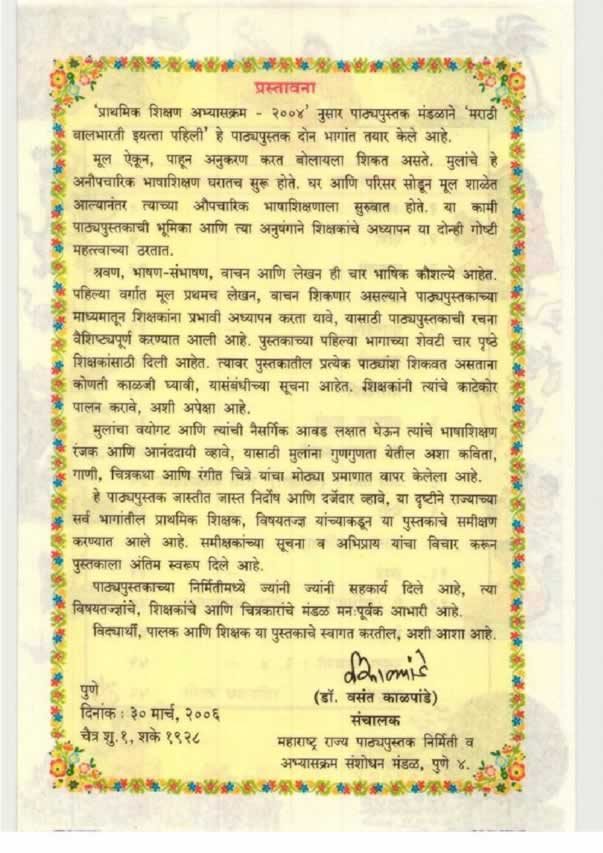 प्रस्तावना
'प्राथमिक शिक्षण अभ्यासक्रम - २००४' नुसार पाठ्यपुस्तक मंडळाने 'मराठी
बालभारती इयत्ता पहिली' हे पाठ्यपुस्तक दोन भागांत तयार केले आहे.
मूल ऐकून, पाहून अनुकरण करत बोलायला शिकत असते. मुलांचे हे
अनौपचारिक भाषाशिक्षण घरातच सुरू होते. घर आणि परिसर सोडून मूल शाळेत
आल्यानंतर त्याच्या औपचारिक भाषाशिक्षणाला सुरुवात होते. या कामी
पाठ्यपुस्तकाची भूमिका आणि त्या अनुषंगाने शिक्षकांचे अध्यापन या दोन्ही गोष्टी
महत्त्वाच्या ठरतात.
श्रवण, भाषण-संभाषण, वाचन आणि लेखन ही चार भाषिक कौशल्ये आहेत.
पहिल्या वर्गात मूल प्रथमच लेखन, वाचन शिकणार असल्याने पाठ्यपुस्तकाच्या
माध्यमातून शिक्षकांना प्रभावी अध्यापन करता यावे, यासाठी पाठ्यपुस्तकाची रचना
वैशिष्ट्यपूर्ण करण्यात आली आहे. पुस्तकाच्या पहिल्या भागाच्या शेवटी चार पृष्ठे
शिक्षकांसाठी दिली आहेत. त्यावर पुस्तकातील प्रत्येक पाठ्यांश शिकवत असताना
कोणती काळजी घ्यावी, यासंबंधीच्या सूचना आहेत. शिक्षकांनी त्यांचे काटेकोर
पालन करावे, अशी अपेक्षा आहे.
मुलांचा वयोगट आणि त्यांची नैसर्गिक आवड लक्षात घेऊन त्यांचे भाषाशिक्षण
रंजक आणि आनंददायी व्हावे, यासाठी मुलांना गुणगुणता येतील अशा कविता,
गाणी, चित्रकथा आणि रंगीत चित्रे यांचा मोठ्या प्रमाणात वापर केलेला आहे.
हे पाठ्यपुस्तक जास्तीत जास्त निर्दोष आणि दर्जेदार व्हावे, या दृष्टीने राज्याच्या
सर्व भागांतील प्राथमिक शिक्षक, विषयतज्ज्ञ यांच्याकडून या पुस्तकाचे समीक्षण
करण्यात आले आहे. समीक्षकांच्या सूचना व अभिप्राय यांचा विचार करून
पुस्तकाला अंतिम स्वरूप दिले आहे.
पाठ्यपुस्तकाच्या निर्मितीमध्ये ज्यांनी ज्यांनी सहकार्य दिले आहे, त्या
विषयतज्ज्ञांचे, शिक्षकांचे आणि चित्रकारांचे मंडळ मनःपूर्वक आभारी आहे.
विद्यार्थी, पालक आणि शिक्षक या पुस्तकाचे स्वागत करतील, अशी आशा आहे.
पुणे
दिनांक : ३० मार्च, २००६
चैत्र शु.१, शके १९२८
(डॉ. वसंत काळपांडे)
संचालक
महाराष्ट्र राज्य पाठ्यपुस्तक निर्मिती व
अभ्यासक्रम संशोधन मंडळ, पुणे ४.